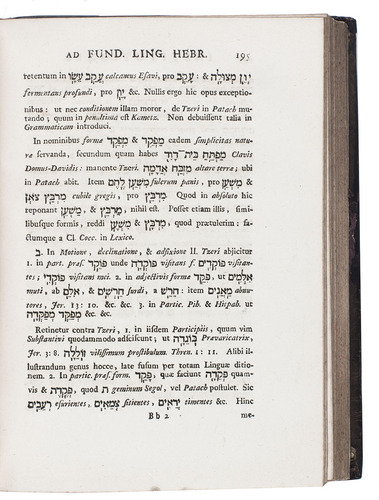 AD FUND. LING. HEBR. 195
retentum in עֲקֵב עֵשָׂו calcaneus Esavi, pro עֲקֵב : & יְוֵן מְצוּלָה
fermentans profundi, pro יָוֵן &c. Nullis ergo hic opus exceptio-
nibus: ut nec conditionem illam moror, de Tzeri in Patach mu-
tando; quum in penultima est Kametz. Non debuissent talia in
Grammaticam introduci.
In nominibus formæ מַפְקֵד & מִפְקֵד eadem simplicitas natu-
ræ servanda, secundum quam habes מַפְתֵּחַ בֵּית־דָּוִד Clavis
Domus-Davidis: מִזְבַּח אֲדָמָה altare terræ; ubi
in Patach abit. Item מִשְׁעַן לֶחֶם fulcrum panis, pro מִשְׁעֵן &
צֹאן מַרְבֵּץ cubile gregis, pro מַרְבֵּץ. Quod in absoluto hic
reponant מִשְׁעָן & מַרְבָּץ, nihil est. Posset etiam illis, simi-
libusque formis, reddi מִשְׁעָן & מַרְבָּץ, quod prætulerim: fa-
ctumque a Cl. Cocc. in Lexico.
ב. In Motione, declinatione, & adfixione II. Tzeri abjicitur
1. in part. præs. פּוֹקֵד unde פּוֹקְדָה visitans f. פּוֹקְדִים visitan-
tes; פּוֹקְדִי visitans mei. 2. in adjectivis formæ פִּקֵּד, ut אִלְּמִים
muti, ab אִלֵּם, & חֵרְשִׁים surdi, a חֵרֵשׁ : item מֵאֲנִים abnu-
tores, Jer. 13: 10. &c. &c. 3. in Partic. Pih. & Hiphil. ut
מְפַקֵּד מְפַקְּדָה &c. &c.
Retinetur contra Tzeri, 1. in iisdem Participiis, quum vim
Substantivi quodammodo adsciscunt, ut בּוֹגֵדָה Prævaricatrix,
Jer. 3: 8. זוֹלֵלָה vilissimum prostibulum. Thren. 1: 11. Alibi il-
lustrandum genus hocce, late fusum per totam Linguæ ditio-
nem. 2. In partic. præs. form. פָּקֵד, quæ faciunt פְּקֵדָה quam-
vis & פְּקֶדֶת, ת geminum Segol, vel Patach postulet. Sic
רְעֵבִים esurientes, צְמֵאִים sitientes, יְרֵאִים timentes &c. Hinc
Bb 2 me-